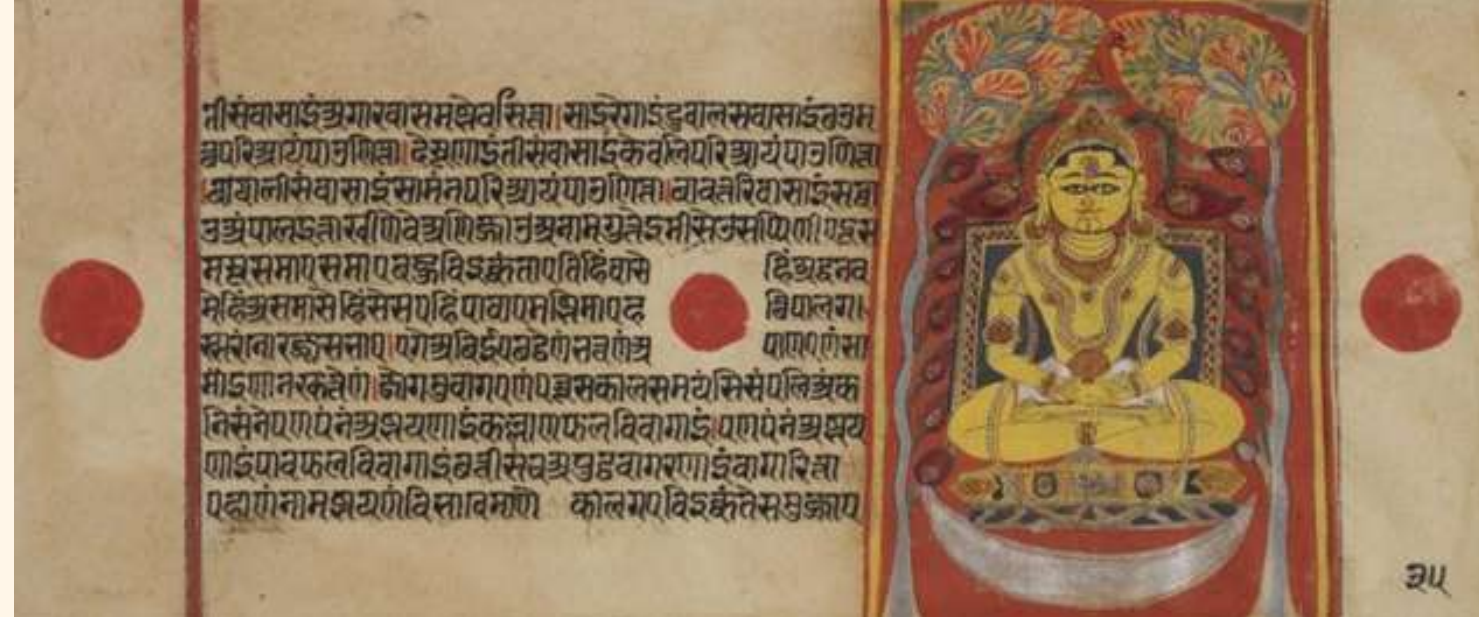 तीसंवासाइंअगारवासमझेवसित्ता।साइरेगाइंदुवालसवासाइंछउम
त्थपरिआयंपाउणित्ता।देसूणाइंतीसंवासाइंकेवलिपरिआयंपाउणित्ता
।बायालीसंवासाइंसामंनपरिआयंपाउणित्ता।बावत्तरिवासाइंसव्वा
उअंपालइत्ताखीणेवेअणिज्जाउअनामगुत्तेइमीसेउसप्पिणीएदूस
मसुसमाएसमाएबहुविइक्कंताएतिहिंवासे हिंअद्धनव
मेहिंअमासेहिंसेसएहिंपावाएमझिमाएह त्थिपालगा
स्सरंनोरज्जुसभाए।एगेअबिईएछठेणंभत्तेणंअ पाणएणंसा
साइणानरकत्तेणं।जोगमुवागएणंपच्चूसकालसमयंसिसंपलिअंक
निसंनेपणपंनंअझयणाइंकल्लाणफलविवागाइं।पणपंनंअझय
णाइंपावफलविवागाइंछत्तीसंचअपुठवागरणाइंवागरित्ता
पहाणंनामअझयणंविभावेमाणे कालगएविइक्कंतेसमुज्जाए
३५